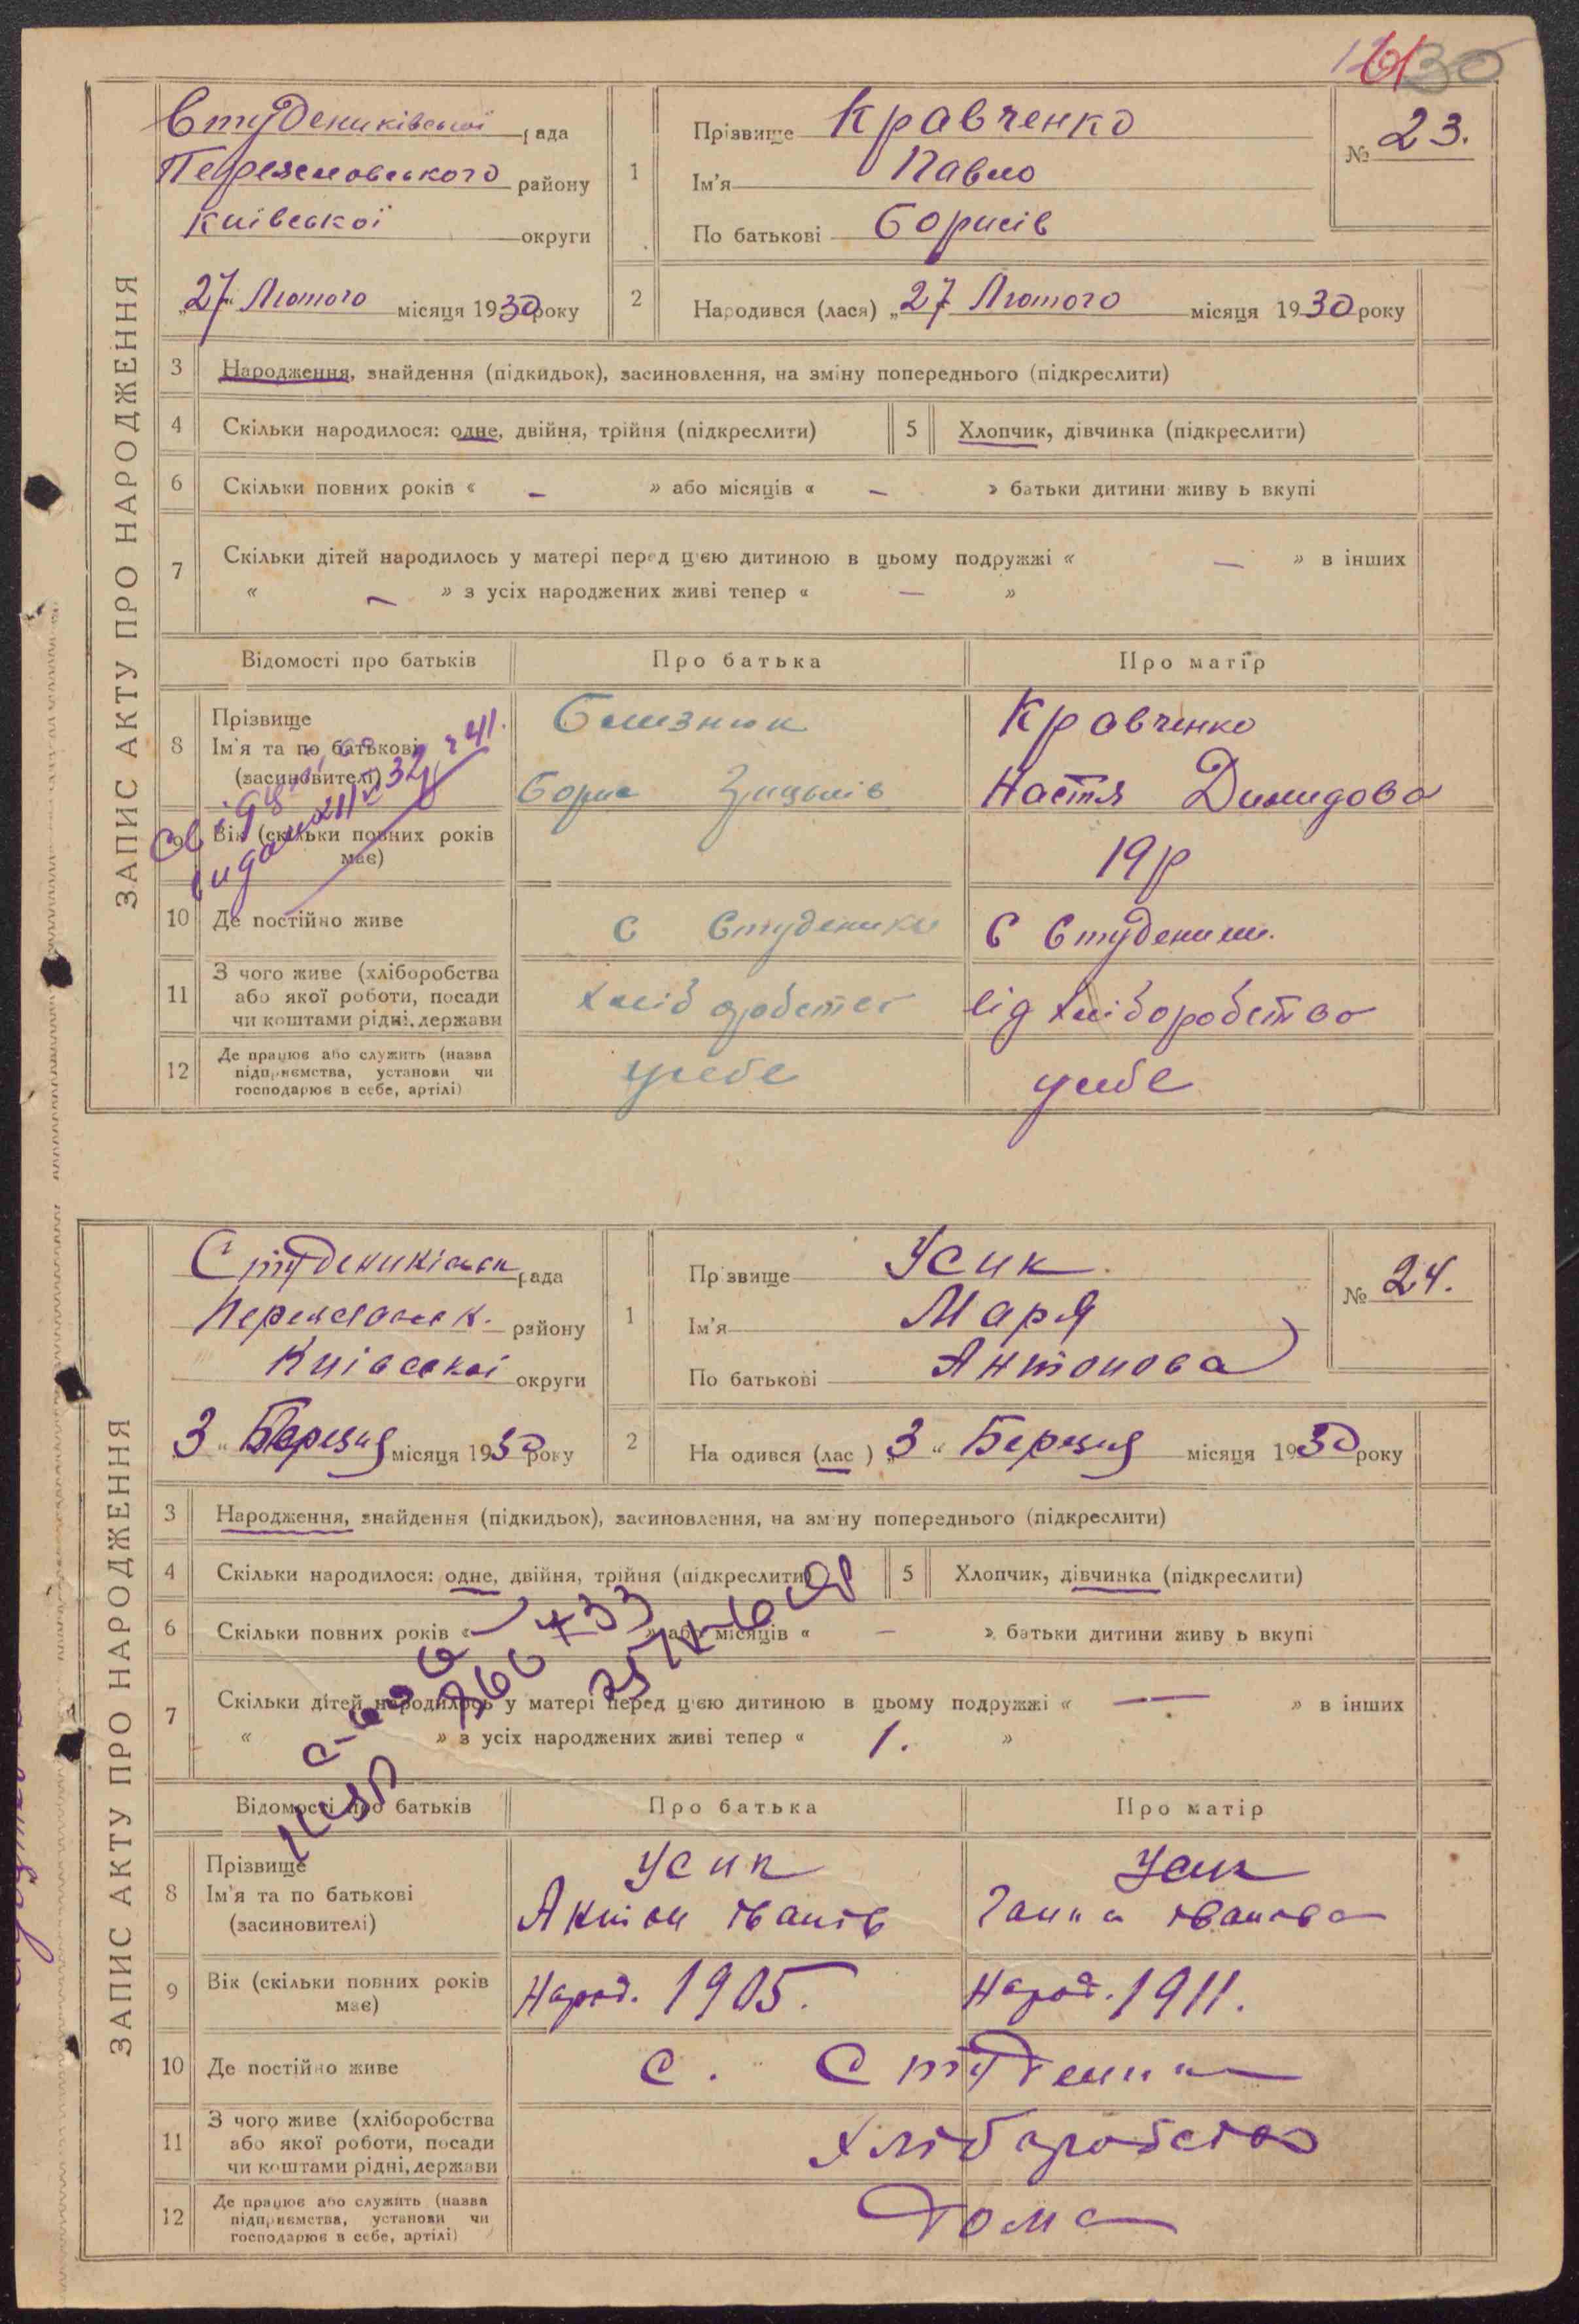 30
Студениківської рада
Переяславського району
Київської округи
„27" Лютого місяця 1930 року
1
Прізвище Кравченко
Ім'я Павло
По батькові Борисів
№ 23.
2
Народився (лася) „27 Лютого місяця 1930 року
ЗАПИС АКТУ ПРО НАРОДЖЕННЯ
3 Народження, знайдення (підкидьок), засиновлення, на зміну попереднього (підкреслити)
4 Скільки народилося: одне, двійня, трійня (підкреслити) 5 Хлопчик, дівчинка (підкреслити)
6 Скільки повних років « – » або місяців « – » батьки дитини живу ь вкупі
7 Скільки дітей народилось у матері перед цією дитиною в цьому подружжі « — » в інших
« – » з усіх народжених живі тепер « — »
Відомості про батьків Про батька Про матір
8 Прізвище
Ім'я та по батькові
(засиновителі)
Близнюк
Борис
Кравченко
Настя Демидова
9 Вік (скільки повних років має)
19 р
10 Де постійно живе с Студеники с Студеники.
11 З чого живе (хліборобства
або якої роботи, посади
чи коштами рідні, держави
хліборобство
від хліборобство
12 Де працює або служить (назва
підприємства, установи чи
господарює в себе, артілі)
усебе
усебе
Студениківськ рада
Переяславськ. району
Київської округи
„3" Березня місяця 1930 року
1
Прізвище Усик.
Ім'я Марія
По батькові Антонова
№ 24.
2
На одився (лас ) „3" Березня місяця 1930 року
ЗАПИС АКТУ ПРО НАРОДЖЕННЯ
3 Народження, знайдення (підкидьок), засиновлення, на зміну попереднього (підкреслити)
4 Скільки народилося: одне, двійня, трійня (підкреслити) 5 Хлопчик, дівчинка (підкреслити)
6 Скільки повних років « » або місяців « – » батьки дитини живу ь вкупі
7 Скільки дітей народилось у матері перед цією дитиною в цьому подружжі « — » в інших
« » з усіх народжених живі тепер « 1. »
Відомості про батьків Про батька Про матір
8 Прізвище
Ім'я та по батькові
(засиновителі)
Усик
Антон Іванів
Усик
Ганна Іванова
9 Вік (скільки повних років має)
Народ. 1905.
Народ. 1911.
10 Де постійно живе с. Студеники
11 З чого живе (хліборобства
або якої роботи, посади
чи коштами рідні, держави
Хліборобство
12 Де працює або служить (назва
підприємства, установи чи
господарює в себе, артілі)
Дома